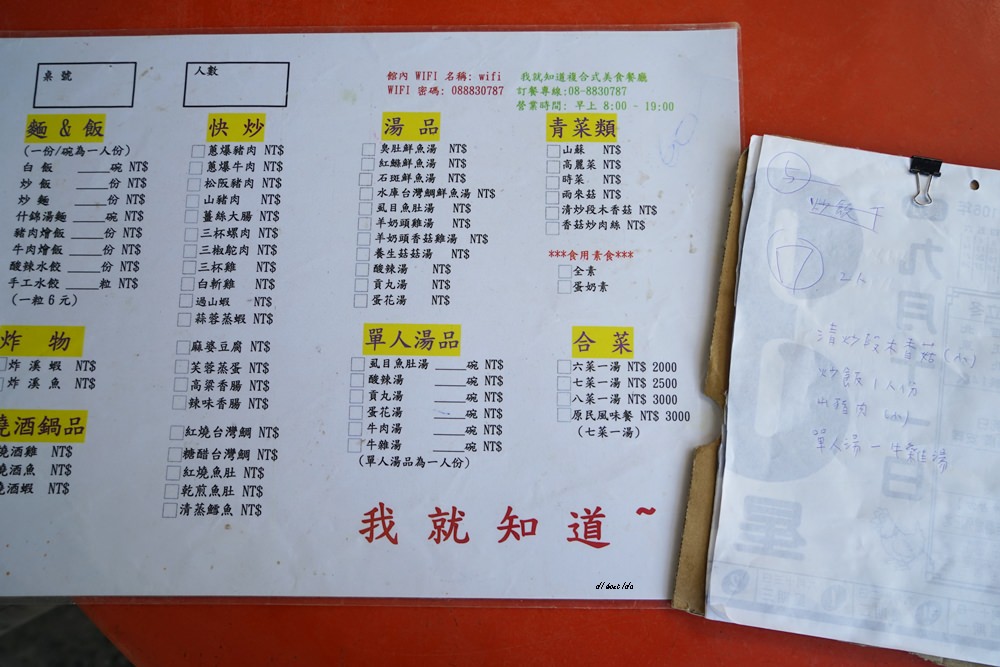 桌號
人數
館內 WIFI 名稱: wifi
WIFI 密碼: 088830787
我就知道複合式美食餐廳
訂餐專線:08-8830787
營業時間: 早上 8:00 - 19:00
麵 & 飯
(一份/碗為一人份)
白 飯 ____碗 NT$
炒 飯 ____份 NT$
炒 麵 ____份 NT$
什錦湯麵____碗 NT$
豬肉燴飯____份 NT$
牛肉燴飯____份 NT$
酸辣水餃____份 NT$
手工水餃____粒 NT$
(一粒6元)
炸 物
炸 溪 蝦 NT$
炸 溪 魚 NT$
燒酒鍋品
燒酒雞 NT$
燒酒魚 NT$
燒酒蝦 NT$
快 炒
蔥爆豬肉 NT$
蔥爆牛肉 NT$
松阪豬肉 NT$
山豬肉 NT$
薑絲大腸 NT$
三杯螺肉 NT$
三椒鴕肉 NT$
三杯雞 NT$
白斬雞 NT$
過山蝦 NT$
蒜蓉蒸蝦 NT$
麻婆豆腐 NT$
芙蓉蒸蛋 NT$
高粱香腸 NT$
辣味香腸 NT$
紅燒台灣鯛 NT$
糖醋台灣鯛 NT$
紅燒魚肚 NT$
乾煎魚肚 NT$
清蒸鱈魚 NT$
湯 品
臭肚鮮魚湯 NT$
紅鰡鮮魚湯 NT$
石斑鮮魚湯 NT$
水庫台灣鯛鮮魚湯 NT$
虱目魚肚湯 NT$
羊奶頭雞湯 NT$
羊奶頭香菇雞湯 NT$
養生菇菇湯 NT$
酸辣湯 NT$
貢丸湯 NT$
蛋花湯 NT$
單人湯品
虱目魚肚湯 ____碗 NT$
酸辣湯 ____碗 NT$
貢丸湯 ____碗 NT$
蛋花湯 ____碗 NT$
牛肉湯 ____碗 NT$
牛雜湯 ____碗 NT$
(單人湯品為一人份)
青菜類
山蘇 NT$
高麗菜 NT$
時菜 NT$
雨來菇 NT$
清炒段木香菇 NT$
香菇炒肉絲 NT$
***食用素食***
全素
蛋奶素
合 菜
六菜一湯 NT$ 2000
七菜一湯 NT$ 2500
八菜一湯 NT$ 3000
原民風味餐 NT$ 3000
(七菜一湯)
我就知道~
清炒段木香菇(小)
炒飯1人份
山豬肉(小)
單人湯一牛雜湯